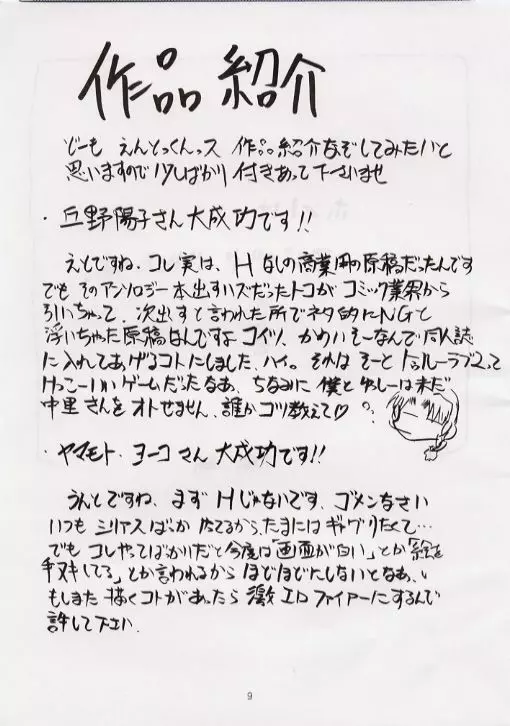 作品紹介
どーも えんどっくんっス 作品紹介なぞしてみたいと
思いますので 少しばかり 付きあって下さいませ
・丘野陽子さん大成功です!!
えとですね、コレ実は、Hなしの商業用の原稿だったんです
でも そのアンソロジー本出すハズだったトコが コミック業界から
引いちゃって、次出すと言われた所でネタ的にNGと
浮いちゃった原稿なんですよ コイツ、かわいそーなんで同人誌
に入れてあげるコトにしました、ハイ。それは そーと トゥルーラブ2って
けっこーいいゲームだったなあ、ちなみに 僕と は未だ
中里さんを オトせません、誰か コツ教えて♡
・ヤマモト・ヨーコさん 大成功です!!
うんとですね、まず Hじゃないです、ゴメンなさい
いつも シリアスばっか だてるから、たまには ギャグりたくて…
でも コレやってばかりだと今度は「画面が白い」とか「絵を
手ヌキしてる」とか言われるから ほどほどにしないとなあ、
もしまた 描くコトがあったら 激エロファイアーにするんで
許して下さい.
9